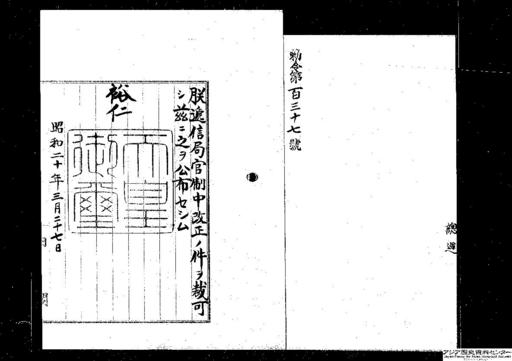 勅令第百三十七號
朕遞信局官制中改正ノ件ヲ裁可
シ茲ニ之ヲ公布セシム
裕仁
天皇
御璽
昭和二十年三月二十七日
アジア歴史資料センター